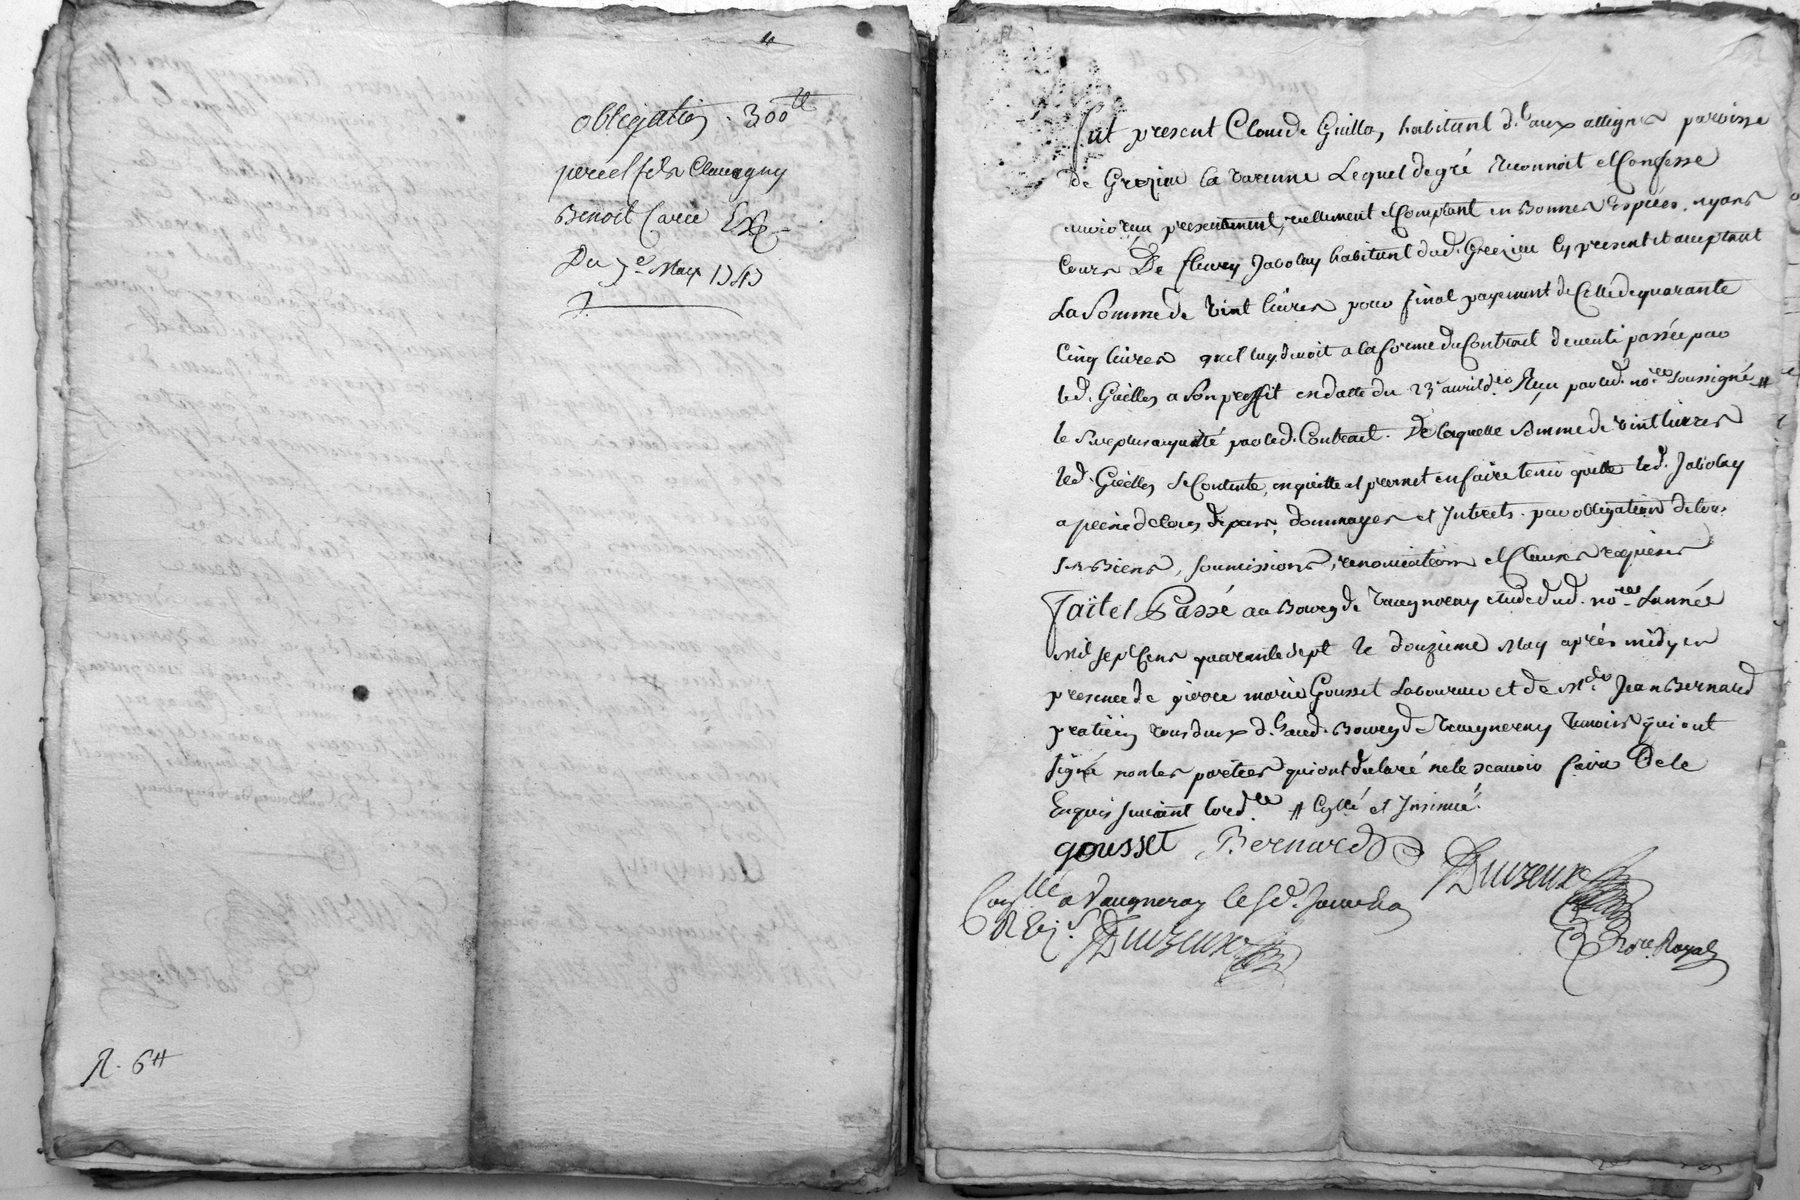 4
obligation 300tt
pere et fils Clavagny
Benoit Carie Exp.
Du 7e May 1747
R. 6tt
fut present Claude Guillo, habitant dt aux alligns paroisse
de Grezieu la varenne Lequel degré reconnoit et Confesse
avoir reçu presentement, reellement et Comptant en Bonnes Espéces, ayans
Cours De fleury Jabolay habitant dud. Grezieu Cy present et acceptant
La Somme de vint livres pour final payement de Celle de quarante
Cinq livres quil luy devoit a la forme du Contrait de vente passée par
led. Guillo a Son proffit en datte du 23e avril dr. Reçu par led. nore Soussigné #
le Surplus acquitté par led. Contrait. De laquelle Somme de vint livres
led. Guillo Se Contente, en quitte et promet en faire tenir quitte led. Jabolay
a peine de tous dépans, dommages et Intrets. par obligation de tous
Ses Biens, Soumissions, renonciations et Clauses requises
Fait et Passé au Bourg de vaugneray etude dud. nore Lannée
mil Sept Cens quarante Sept le douzieme May aprés midy en
presence de pierre marie Gousset Laboureur et de Me Jean Bernard
praticien tous deux dt aud. Bourg de vaugneray temoins qui ont
Signé non les parties qui ont declaré ne le scavoir faire De ce
Enquis suivant lord.ce # Cyllé et Insinué.
gousset Bernard
Duvzeux
Con.llé a Vaugneray le Sd. Jour
R
Duvzeux
Nore Royal